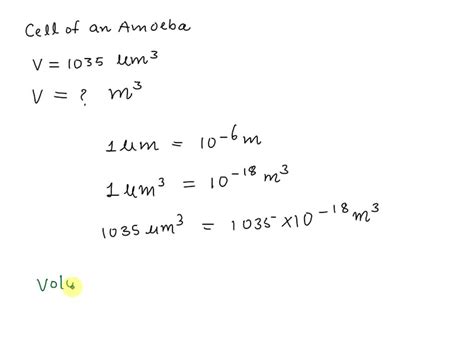 Cell of an Amoeba
V = 1035 μm³
V = ? m³
1 μm = 10⁻⁶ m
1 μm³ = 10⁻¹⁸ m³
1035 μm³ = 1035 × 10⁻¹⁸ m³
Volu